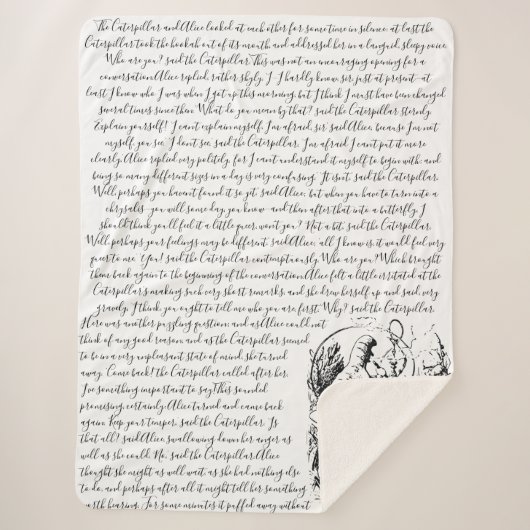 The Caterpillar and Alice looked at each other for some time in silence: at last the
Caterpillar took the hookah out of its mouth, and addressed her in a languid, sleepy voice.
Who are you? said the Caterpillar. This was not an encouraging opening for a
conversation. Alice replied, rather shyly, I--I hardly know, sir, just at present--at
least I know who I was when I got up this morning, but I think I must have been changed
several times since then. What do you mean by that? said the Caterpillar sternly.
Explain yourself! I can't explain myself, I'm afraid, sir, said Alice, because I'm not
myself, you see. I don't see, said the Caterpillar. I'm afraid I can't put it more
clearly, Alice replied very politely, for I can't understand it myself to begin with; and
being so many different sizes in a day is very confusing. It isn't, said the Caterpillar.
Well, perhaps you haven't found it so yet, said Alice; but when you have to turn into a
chrysalis--you will some day, you know--and then after that into a butterfly, I
should think you'll feel it a little queer, won't you? Not a bit, said the Caterpillar.
Well, perhaps your feelings may be different, said Alice; all I know is, it would feel very
queer to me. You! said the Caterpillar contemptuously. Who are you? Which brought
them back again to the beginning of the conversation. Alice felt a little irritated at the
Caterpillar's making such very short remarks, and she drew herself up and said, very
gravely, I think, you ought to tell me who you are, first. Why? said the Caterpillar.
Here was another puzzling question; and as Alice could not
think of any good reason, and as the Caterpillar seemed
to be in a very unpleasant state of mind, she turned
away. Come back! the Caterpillar called after her.
I've something important to say! This sounded
promising, certainly: Alice turned and came back
again. Keep your temper, said the Caterpillar. Is
that all? said Alice, swallowing down her anger as
well as she could. No, said the Caterpillar. Alice
thought she might as well wait, as she had nothing else
to do, and perhaps after all it might tell her something
worth hearing. For some minutes it puffed away without